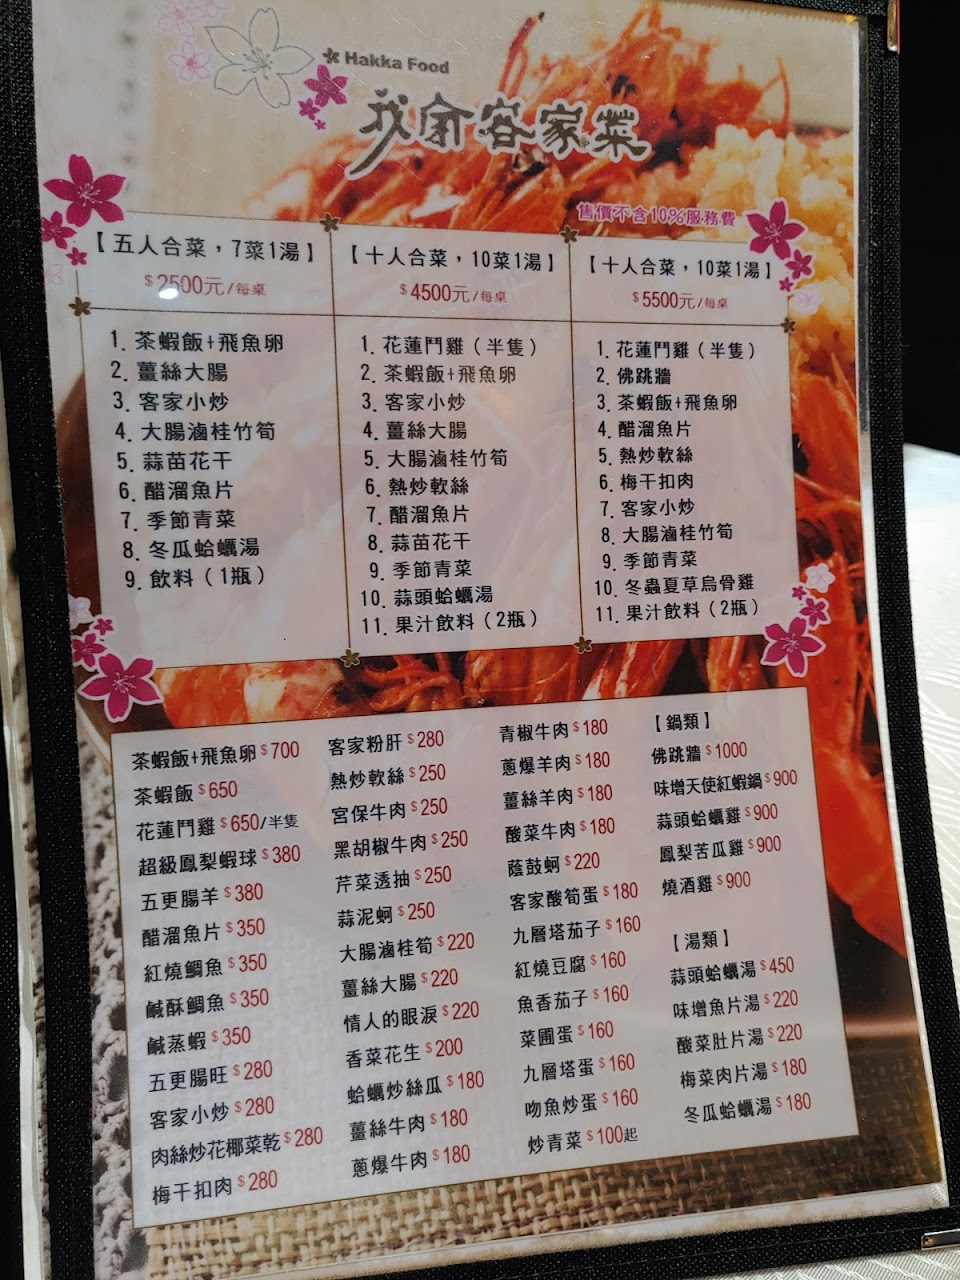 Hakka Food
客家菜
售價不含10%服務費
【五人合菜，7菜1湯】
$2500元/每桌
1. 茶蝦飯+飛魚卵
2. 薑絲大腸
3. 客家小炒
4. 大腸滷桂竹筍
5. 蒜苗花干
6. 醋溜魚片
7. 季節青菜
8. 冬瓜蛤蠣湯
9. 飲料（1瓶）
【十人合菜，10菜1湯】
$4500元/每桌
1. 花蓮鬥雞（半隻）
2. 茶蝦飯+飛魚卵
3. 客家小炒
4. 薑絲大腸
5. 大腸滷桂竹筍
6. 熱炒軟絲
7. 醋溜魚片
8. 蒜苗花干
9. 季節青菜
10. 蒜頭蛤蠣湯
11. 果汁飲料（2瓶）
【十人合菜，10菜1湯】
$5500元/每桌
1. 花蓮鬥雞（半隻）
2. 佛跳牆
3. 茶蝦飯+飛魚卵
4. 醋溜魚片
5. 熱炒軟絲
6. 梅干扣肉
7. 客家小炒
8. 大腸滷桂竹筍
9. 季節青菜
10. 冬蟲夏草烏骨雞
11. 果汁飲料（2瓶）
茶蝦飯+飛魚卵 $700
茶蝦飯 $650
花蓮鬥雞 $650/半隻
超級鳳梨蝦球 $380
五更腸羊 $380
醋溜魚片 $350
紅燒鯛魚 $350
鹹酥鯛魚 $350
鹹蒸蝦 $350
五更腸旺 $280
客家小炒 $280
肉絲炒花椰菜乾 $280
梅干扣肉 $280
客家粉肝 $280
熱炒軟絲 $250
宮保牛肉 $250
黑胡椒牛肉 $250
芹菜透抽 $250
蒜泥蚵 $250
大腸滷桂筍 $220
薑絲大腸 $220
情人的眼淚 $220
香菜花生 $200
蛤蠣炒絲瓜 $180
薑絲牛肉 $180
蔥爆牛肉 $180
青椒牛肉 $180
蔥爆羊肉 $180
薑絲羊肉 $180
酸菜牛肉 $180
蔭鼓蚵 $220
客家酸筍蛋 $180
九層塔茄子 $160
紅燒豆腐 $160
魚香茄子 $160
菜圃蛋 $160
九層塔蛋 $160
吻魚炒蛋 $160
炒青菜 $100起
【鍋類】
佛跳牆 $1000
味增天使紅蝦鍋 $900
蒜頭蛤蠣雞 $900
鳳梨苦瓜雞 $900
燒酒雞 $900
【湯類】
蒜頭蛤蠣湯 $450
味增魚片湯 $220
酸菜肚片湯 $220
梅菜肉片湯 $180
冬瓜蛤蠣湯 $180